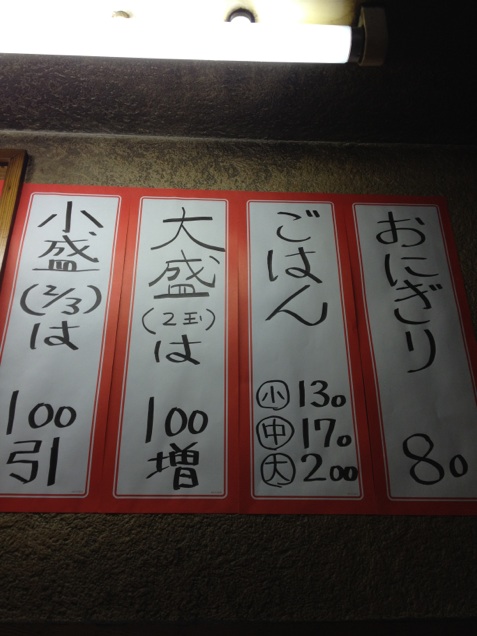 おにぎり
80
ごはん
小 130
中 170
大 200
大盛
(2玉)
は
100
増
小盛
(2/3)
は
100
引